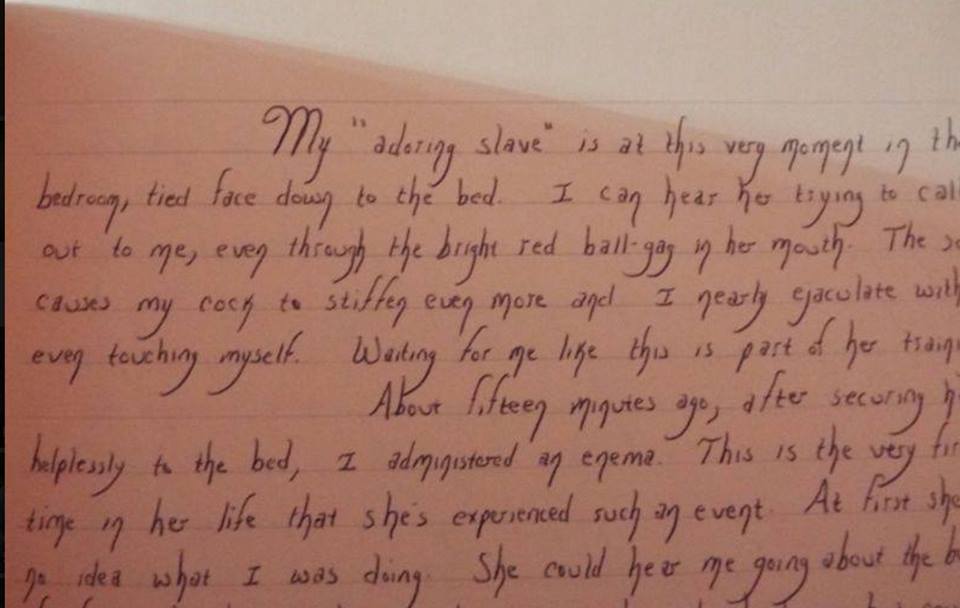 My "adoring slave" is at this very moment in th
bedroom, tied face down to the bed. I can hear her trying to call
out to me, even through the bright red ball-gag in her mouth. The
causes my cock to stiffen even more and I nearly ejaculate with
even touching myself. Waiting for me like this is part of her traini
About fifteen minutes ago, after securing h
helplessly to the bed, I administered an enema. This is the very fir
time in her life that she's experienced such an event. At first she
no idea what I was doing. She could hear me going about the b